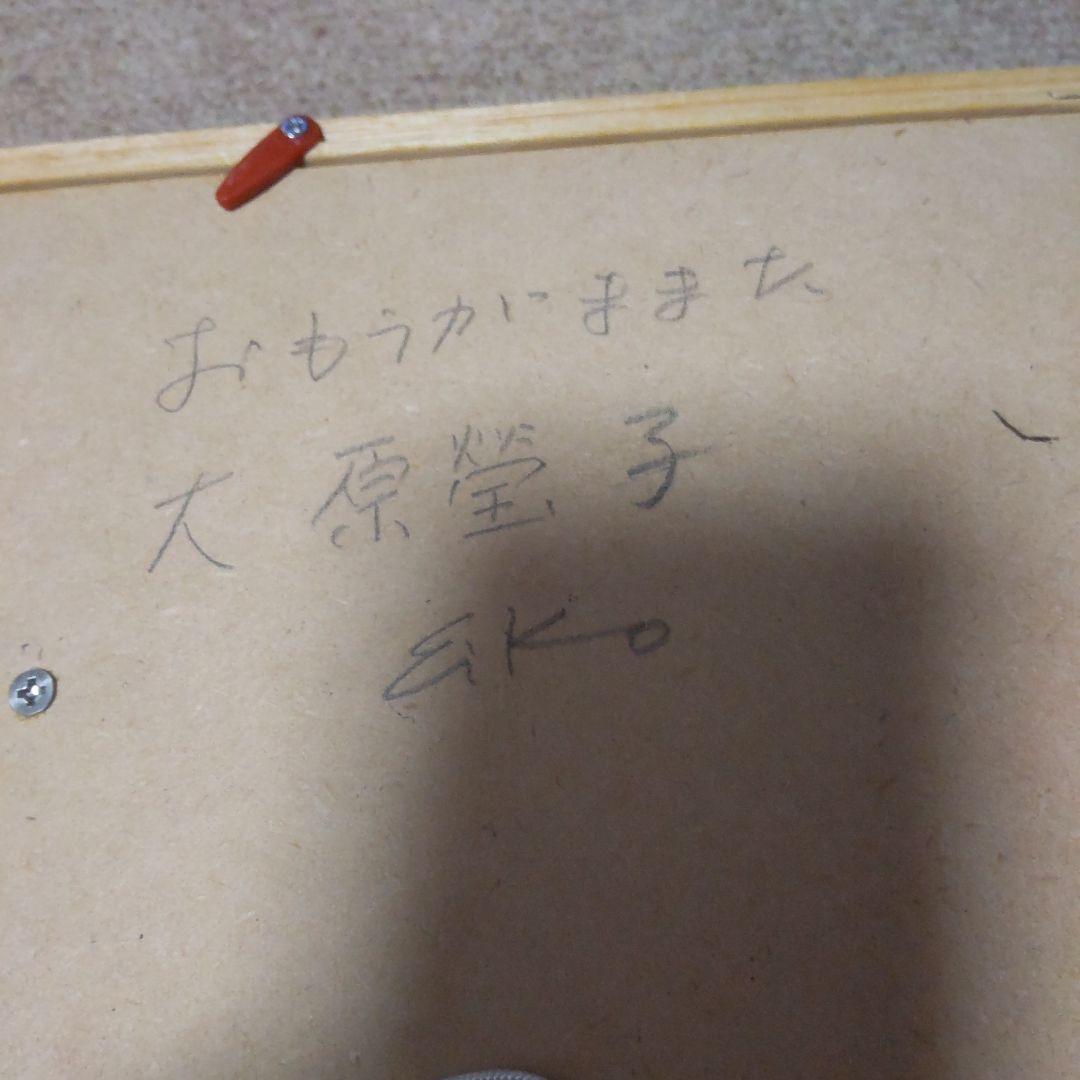 おもうかにままた
大原瑩子
Eiko